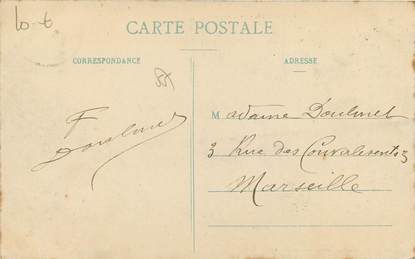 10-6
CARTE POSTALE
CORRESPONDANCE
ADRESSE
F
Doulmet
Madame Doulmet
3 Rue des Convalescents 3
Marseille